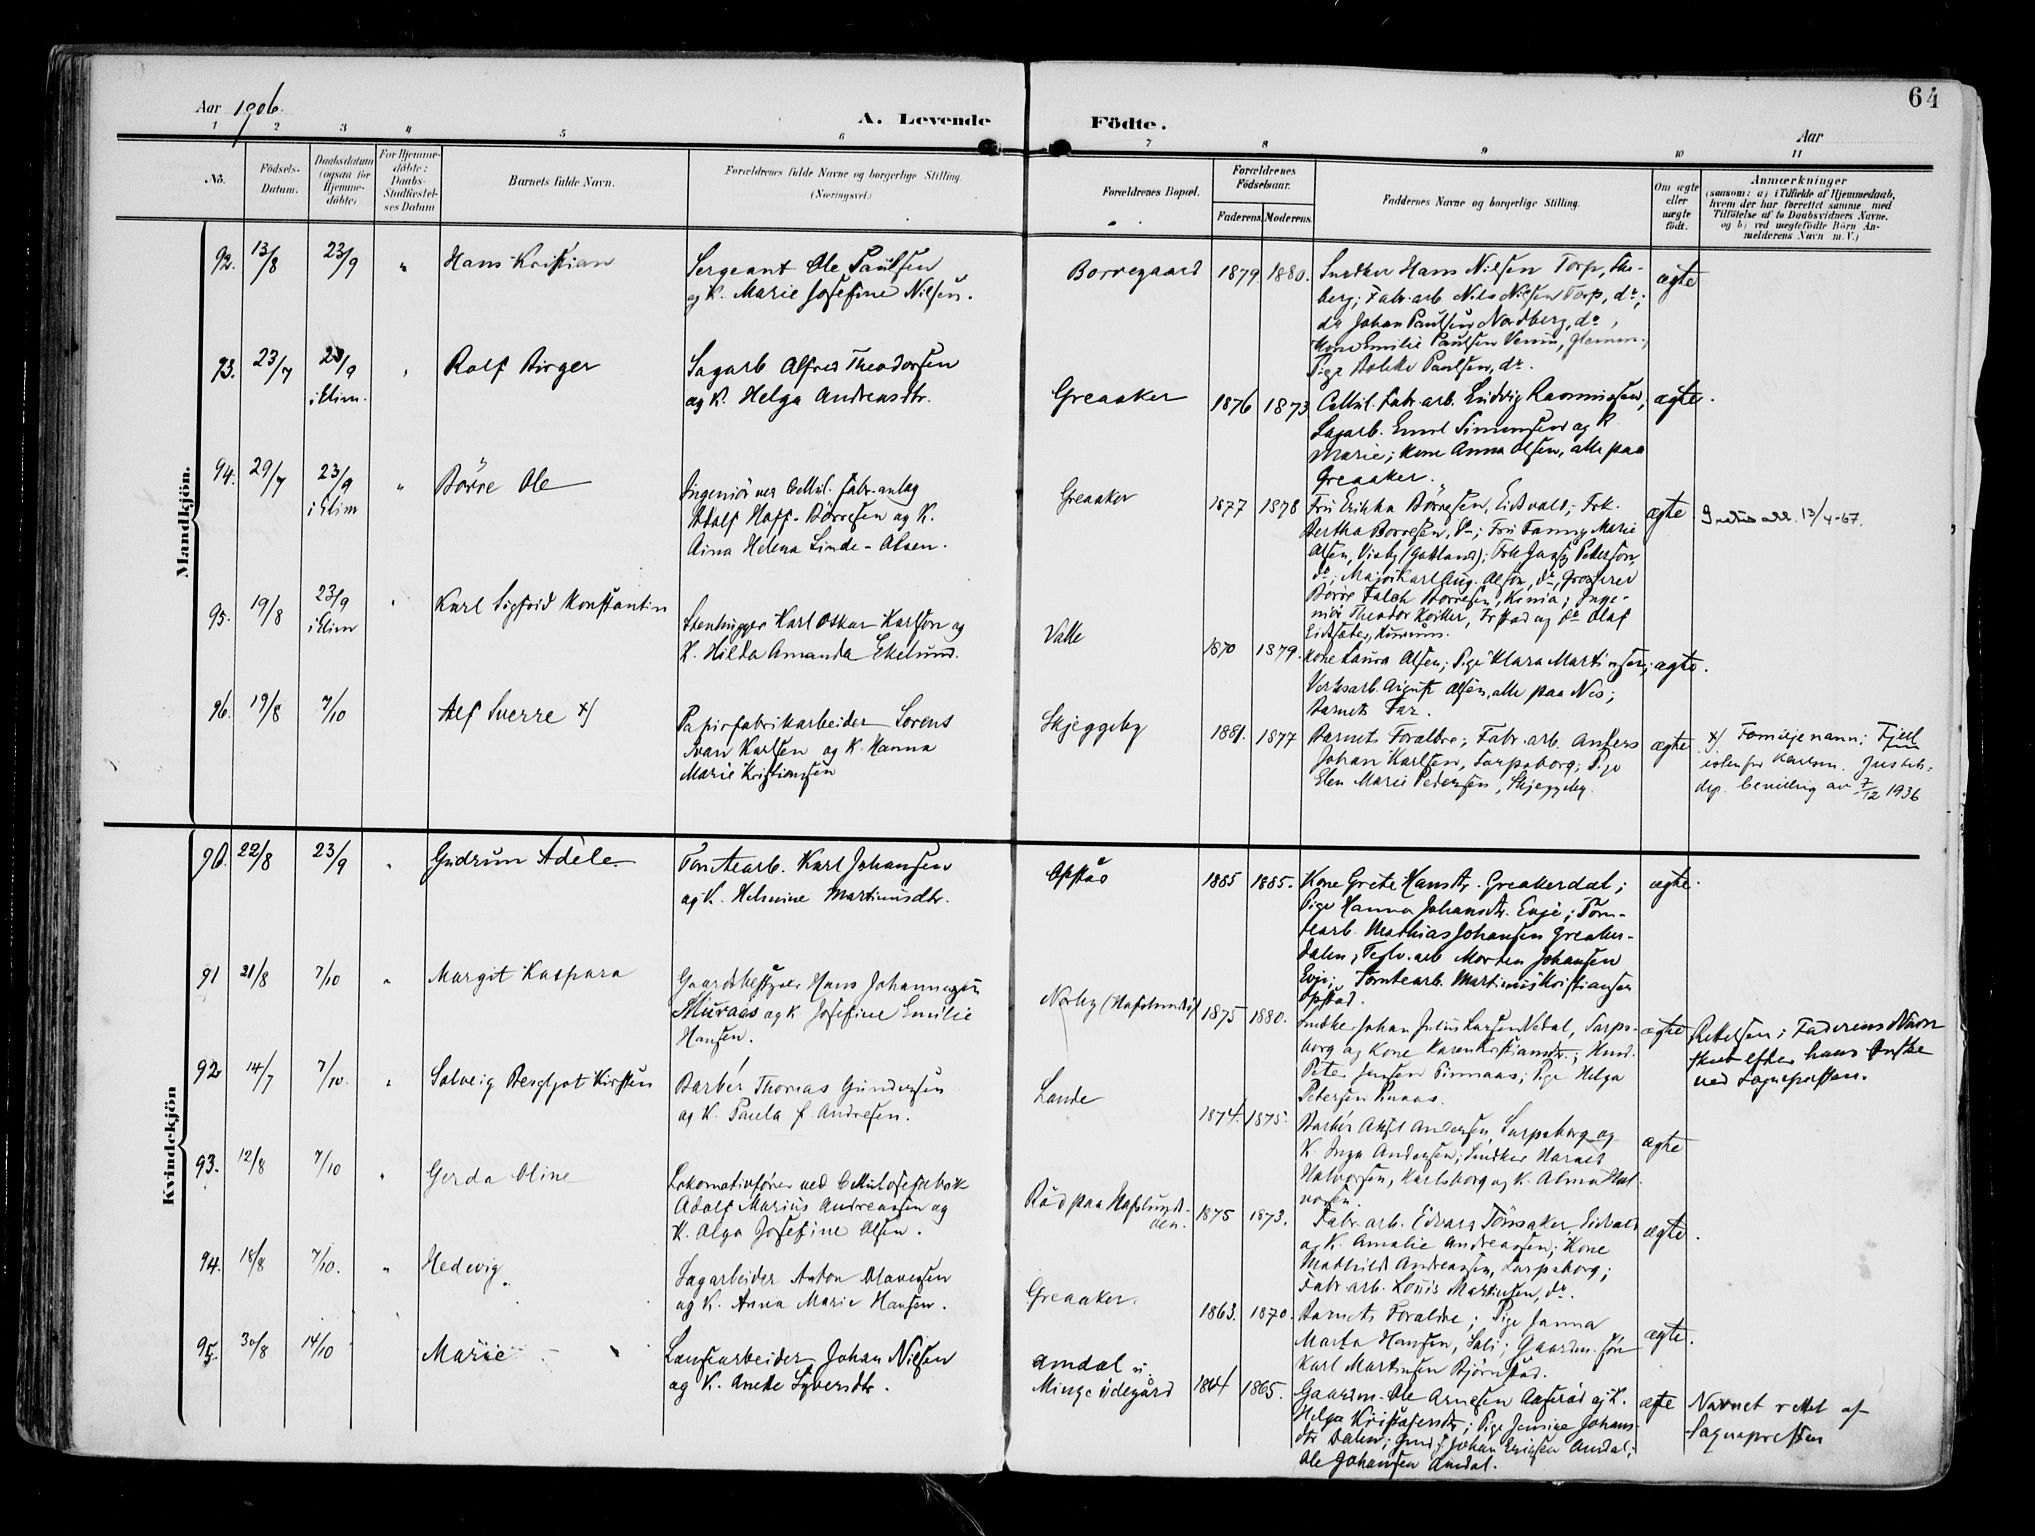 64
Aar 1906.
A. Levende Födte.
Aar
1 2 3 4 5 6 7 8 9 10 11
No.
Födsels-Datum.
Daabsdatum (ogsaa for Hjemmedåbte)
For Hjemmedåbte: Daabs-Stadfæstelses Datum
Barnets fulde Navn.
Forældrenes fulde Navne og borgerlige Stilling. (Næringsvei.)
Forældrenes Bopæl.
Forældrenes Födselsaar.
Faderens. Moderens.
Faddernes Navne og borgerlige Stilling.
Om ægte eller uægte födt.
Anmærkninger
(saasom: a) i Tilfælde af Hjemmedaab, hvem der har forrettet samme med Tilföielse af to Daabsvidners Navne. og b) ved uægtefödte Börn Anmelderens Navn m. V.)
Mandkjön.
92. 13/8 23/9 " Hans Kristian
Sergeant Ole Paulsen
og K. Marie Josefine Nilsen.
Borregaard 1879 1880.
Snedker Hans Nilsen Torp,
berg; Fabr. arb. Nils Nilsen Torp, do;
do Johan Paulsen Nordberg, do,
Kone Emilie Paulsen
Pige Paulsen, do.
ægte
93. 23/7 23/9 Rolf Birger
Sagarb. Alfred Theodorsen
og K. Helga Andreasdtr.
Greaaker 1876 1873
Cellul. Fabr. arb. Ludvig Rasmussen,
Sagarb. Emil Simensen og K.
Marie; Kone Anna Olsen, alle paa
Greaaker.
ægte.
94. 29/7 23/9 " Börre Ole
Ingeniör ved Cellul. fabr. anlæg
Adolf Hoff-Börresen og K.
Aina Helena Linde-Olsen.
Greaaker 1877 1878
Fru Erikka Börresen, Eidsvold; Frk.
Bertha Börresen, do; Fru Fanny Marie
Olsen, Visby (Gotland); Frk. Petersson,
do; Major Karl Aug. Olson, do, Grosserer
Börre Falch Börresen, Kra; Inge-
niör Theodor og do Olaf
ægte
13/4-67.
95. 19/8 23/9 Karl Sigfrid Konstantin
Stenhugger Karl Oskar Karlson og
K. Hilda Amanda Ekelund.
Valle 1870 1879.
Kone Laura Olsen; Pige Klara Martinsen;
Verksarb. August Olsen, alle paa Nes;
Barnets Far.
ægte.
96. 19/8 7/10 Alf Sverre x)
Papirfabrikarbeider Lorens
Ivan Karlsen og K. Hanna
Marie Kristiansen
Skjeggeby 1881. 1877
Barnets Forældre; Fabr. arb. Anders
Johan Karlsen, Sarpsborg; Pige
Elen Marie Pedersen, Skjeggeby.
ægte
x) Familjenavn: Fjell
istenfor Karlsen. Justits-
dep. bevilling av 7/12 1936
Kvindekjön
90. 22/8 23/9 " Gudrun Adéle
Tomtearb. Karl Johansen
og K. Helmine Martinusdtr.
Opstad 1885 1885.
Kone Grete Hansdtr. Greakerdal;
Pige Hanna Johansdtr. Evje; Tom-
tearb. Mathias Johansen Greaker-
dalen; Teglv. arb. Morten Johansen
Evje; Tomtearb. Martinus Kristiansen
Opstad.
ægte.
91 21/8 7/10 " Margit Kaspara
Gaardbestyrer Hans Johannesen
Skuraas og K. Josefine Emilie
Hansen.
Norby (Hafslund) 1875 1880.
Snedker Johan Julius Larsen Nedal, Sarps-
borg og Kone Karen Kristiansdtr.;
Peter Jensen Pinnaas; Pige Helga
Petersen Pinaas.
ægte
Rettelsen i Faderens Navn
sket efter hans Önske
ved Sognepresten.
92 14/7 7/10. " Solveig Bergljot Kirsten
Barbér Thomas Gundersen
og K. Paula f. Andresen.
Lande 1874. 1875.
Barbér Aksel Andersen, Sarpsborg og
K. Inga Andersen; Snedker Harald
Halvorsen, Karlsborg og K. Alma Hal-
vorsen.
ægte
93. 12/8 7/10 " Gerda Oline
Lokomotivförer ved Cellulosefabrik
Adolf Marius Andreassen og
K. Olga Josefine Olsen.
Röd paa Hafslund-
den. 1875 1873.
Fabr. arb. Edvard
og K. Amalie Andreassen; Kone
Mathild Andreassen, Sarpsborg;
Fabr. arb. Louis Martinsen, do.
ægte.
94. 18/8 7/10. " Hedevig
Sagarbeider Anton Olavessen
og K. Anna Marie Hansen.
Greaaker. 1863. 1870.
Barnets Forældre; Pige Janna
Marta Hansen, Soli; Gaardm. sön
Karl Martinsen Björnstad.
ægte.
95. 30/8 14/10 Marie
Landarbeider Johan Nilsen
og K. Anette Syversdtr.
Amdal u.
Minge ödegård 1864 1865.
Gaardm. Ole Arnesen og K.
Helga Kristofersdtr; Pige Jensine Johans-
dtr Dalen; Johan Eriksen Amdal;
Ole Johansen Amdal.
ægte
Navnet rettet af
Sognepresten